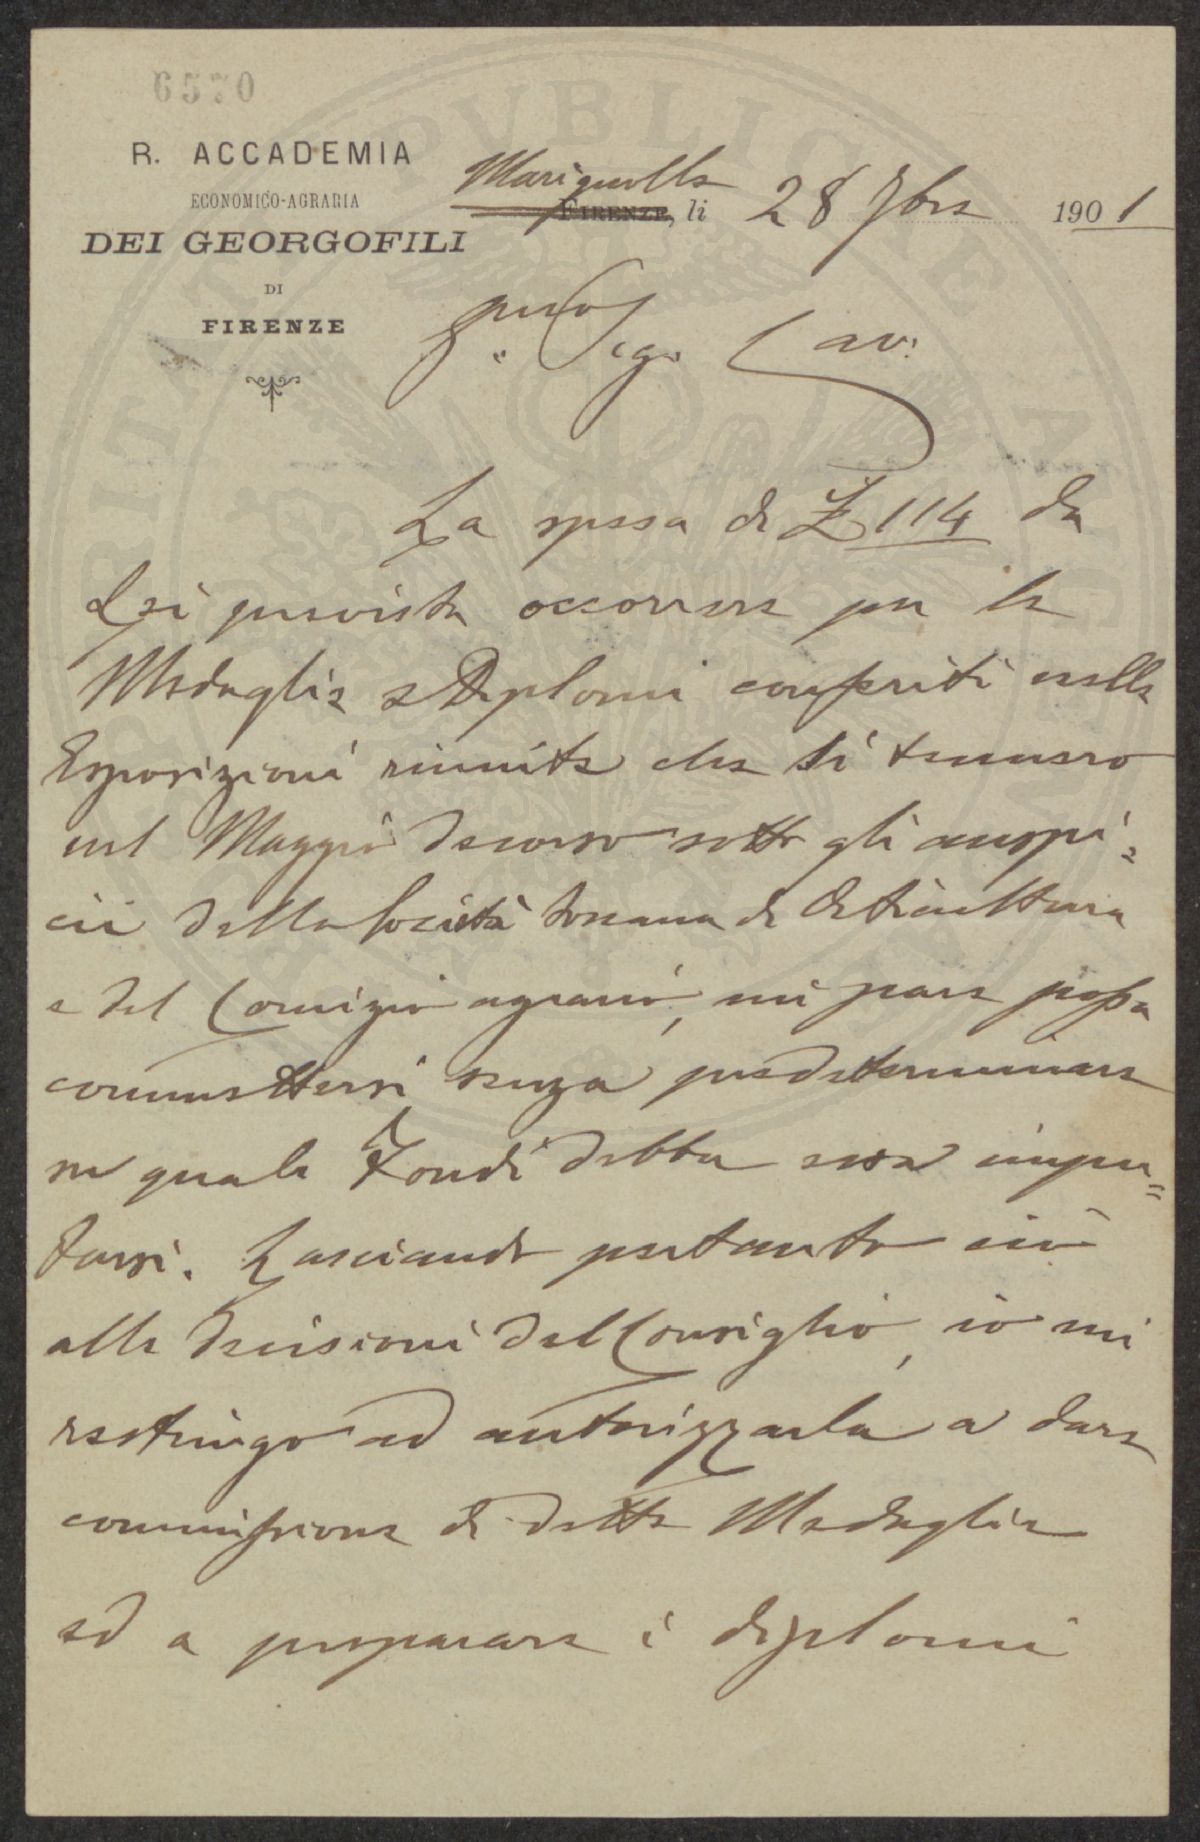 6570
R. ACCADEMIA
ECONOMICO-AGRARIA
DEI GEORGOFILI
DI
FIRENZE
Marignolle
FIRENZE, li 28 7bre 1901
Sig. Cav:
La spesa di £ 114 da
Lei prevista occorrere per le
Medaglie e Diplomi conferiti nelle
Esposizioni riunite che si tennero
nel Maggio decorso sotto gli auspi-
cii della Società toscana di Orticultura
e del Comizio agrario, mi pare possa
commettersi senza predeterminare
su quale Fondi debba essa impu=
tarsi. Lasciando pertanto ciò
alle decisioni del Consiglio, io mi
restringo ad autorizzarla a dare
commissione di dette Medaglie
ed a preparare i diplomi